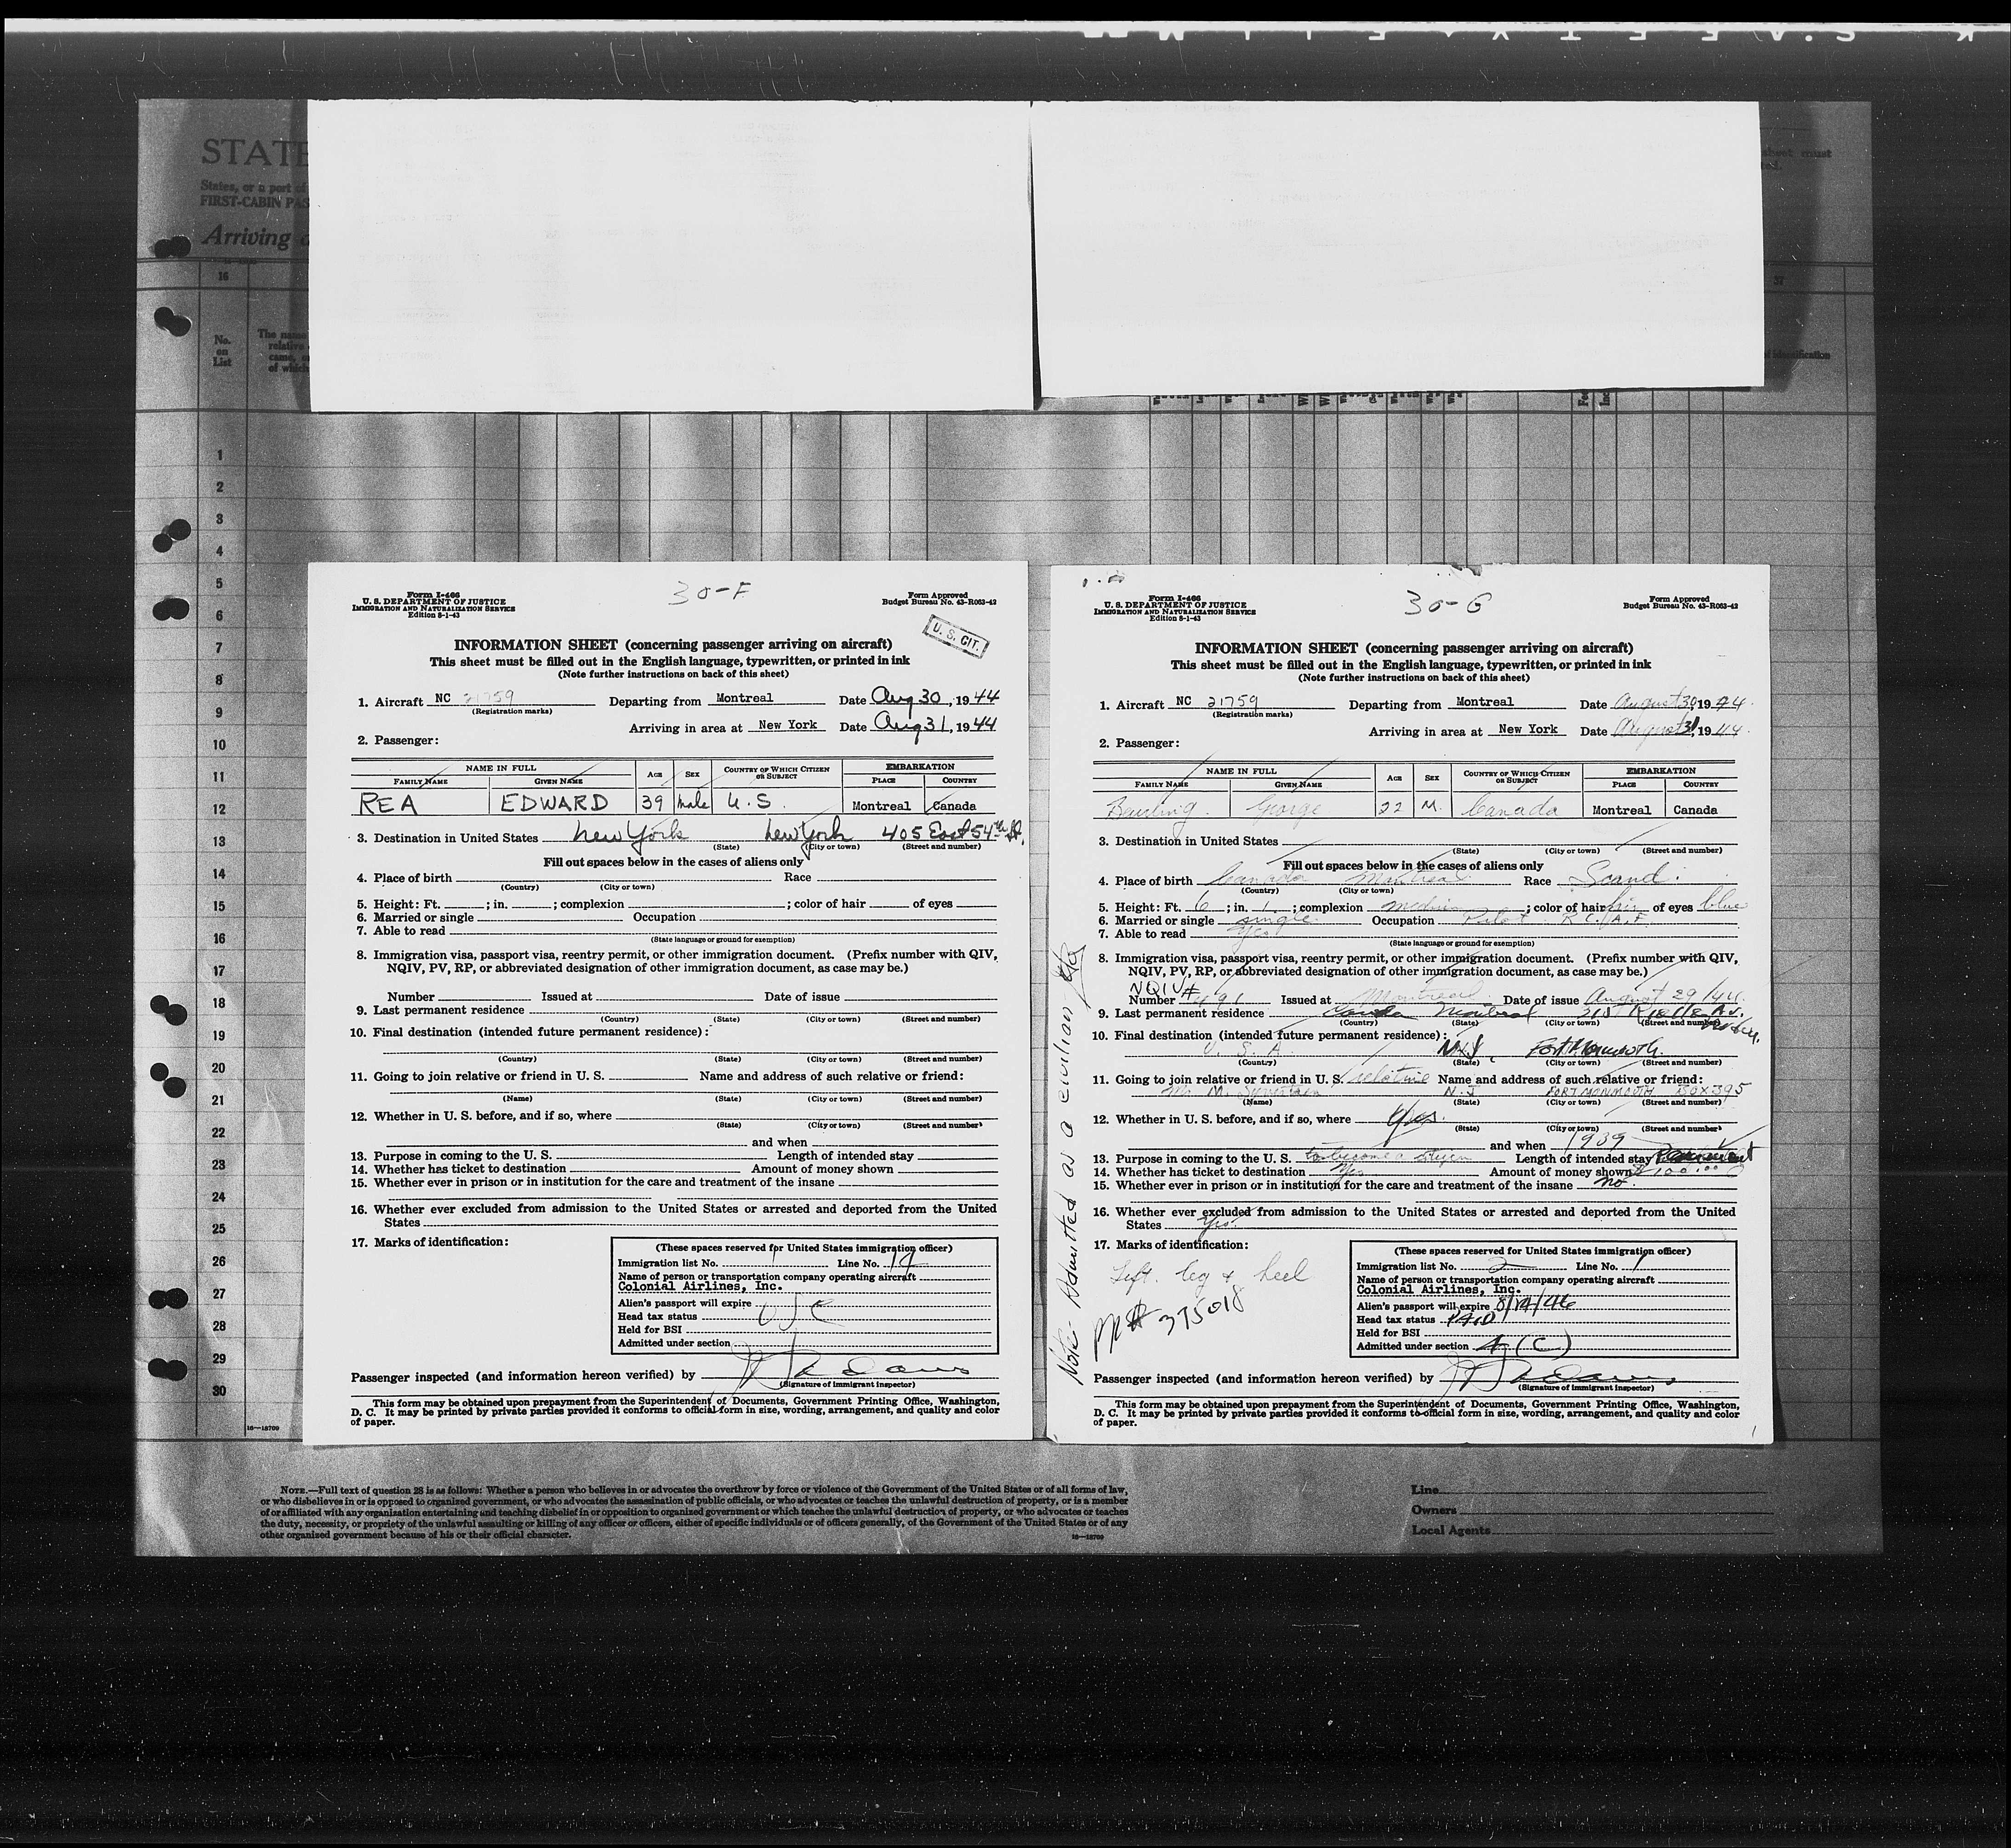 STATE
States, or a port of
FIRST-CABIN PAS
Arriving
sheet must
16
37
No.
on
List
The name
relative
came,
of which
of identification
1
2
3
4
5
6
7
8
9
10
11
12
13
14
15
16
17
18
19
20
21
22
23
24
25
26
27
28
29
30
16—18709
Form I-466
U. S. DEPARTMENT OF JUSTICE
IMMIGRATION AND NATURALIZATION SERVICE
Edition 8-1-43
30-F
Form Approved
Budget Bureau No. 43-R063-42
U. S. CIT.
INFORMATION SHEET (concerning passenger arriving on aircraft)
This sheet must be filled out in the English language, typewritten, or printed in ink
(Note further instructions on back of this sheet)
1. Aircraft NC 21759 Departing from Montreal Date Aug 30, 1944
(Registration marks)
Arriving in area at New York Date Aug 31, 1944
2. Passenger:
NAME IN FULL AGE SEX COUNTRY OF WHICH CITIZEN OR SUBJECT EMBARKATION
FAMILY NAME GIVEN NAME PLACE COUNTRY
REA EDWARD 39 male U.S. Montreal Canada
3. Destination in United States New York New York 405 East 54th St.
(State) (City or town) (Street and number)
Fill out spaces below in the cases of aliens only
4. Place of birth Race
(Country) (City or town)
5. Height: Ft. ; in. ; complexion ; color of hair of eyes
6. Married or single Occupation
7. Able to read
(State language or ground for exemption)
8. Immigration visa, passport visa, reentry permit, or other immigration document. (Prefix number with QIV,
NQIV, PV, RP, or abbreviated designation of other immigration document, as case may be.)
Number Issued at Date of issue
9. Last permanent residence
(Country) (State) (City or town) (Street and number)
10. Final destination (intended future permanent residence):
(Country) (State) (City or town) (Street and number)
11. Going to join relative or friend in U. S. Name and address of such relative or friend:
(Name) (State) (City or town) (Street and number)
12. Whether in U. S. before, and if so, where
(State) (City or town) (Street and number)
and when
13. Purpose in coming to the U. S. Length of intended stay
14. Whether has ticket to destination Amount of money shown
15. Whether ever in prison or in institution for the care and treatment of the insane
16. Whether ever excluded from admission to the United States or arrested and deported from the United
States
17. Marks of identification:
(These spaces reserved for United States immigration officer)
Immigration list No. 1 Line No. 14
Name of person or transportation company operating aircraft
Colonial Airlines, Inc.
Alien's passport will expire
Head tax status USC
Held for BSI
Admitted under section
Passenger inspected (and information hereon verified) by
(Signature of immigrant inspector)
This form may be obtained upon prepayment from the Superintendent of Documents, Government Printing Office, Washington,
D. C. It may be printed by private parties provided it conforms to official form in size, wording, arrangement, and quality and color
of paper.
Form I-466
U. S. DEPARTMENT OF JUSTICE
IMMIGRATION AND NATURALIZATION SERVICE
Edition 8-1-43
30-G
Form Approved
Budget Bureau No. 43-R063-42
INFORMATION SHEET (concerning passenger arriving on aircraft)
This sheet must be filled out in the English language, typewritten, or printed in ink
(Note further instructions on back of this sheet)
1. Aircraft NC 21759 Departing from Montreal Date August 30, 1944
(Registration marks)
Arriving in area at New York Date August 31, 1944
2. Passenger:
NAME IN FULL AGE SEX COUNTRY OF WHICH CITIZEN OR SUBJECT EMBARKATION
FAMILY NAME GIVEN NAME PLACE COUNTRY
George 22 M. Canada Montreal Canada
3. Destination in United States
(State) (City or town) (Street and number)
Fill out spaces below in the cases of aliens only
4. Place of birth Canada Montreal Race Scand.
(Country) (City or town)
5. Height: Ft. 6 ; in. 1 ; complexion medium ; color of hair of eyes blue
6. Married or single single Occupation Pilot R.C.A.F.
7. Able to read Yes
(State language or ground for exemption)
8. Immigration visa, passport visa, reentry permit, or other immigration document. (Prefix number with QIV,
NQIV, PV, RP, or abbreviated designation of other immigration document, as case may be.)
NQIV
Number #491 Issued at Montreal Date of issue August 29/44.
9. Last permanent residence Canada Montreal
(Country) (State) (City or town) (Street and number)
10. Final destination (intended future permanent residence):
U. S. A. N.J. Fort Monmouth.
(Country) (State) (City or town) (Street and number)
11. Going to join relative or friend in U. S. relative Name and address of such relative or friend:
M. N.J. FORT MONMOUTH BOX 395
(Name) (State) (City or town) (Street and number)
12. Whether in U. S. before, and if so, where Yes.
(State) (City or town) (Street and number)
and when 1939
13. Purpose in coming to the U. S. to become a citizen Length of intended stay Permanent
14. Whether has ticket to destination Yes Amount of money shown $100.00
15. Whether ever in prison or in institution for the care and treatment of the insane no.
16. Whether ever excluded from admission to the United States or arrested and deported from the United
States Yes.
17. Marks of identification:
Left. leg & heel
# 375018
Note- Admitted as a civilian
(These spaces reserved for United States immigration officer)
Immigration list No. 2 Line No. 1
Name of person or transportation company operating aircraft
Colonial Airlines, Inc.
Alien's passport will expire 8/14/46
Head tax status PAID
Held for BSI
Admitted under section 4 (C)
Passenger inspected (and information hereon verified) by
(Signature of immigrant inspector)
This form may be obtained upon prepayment from the Superintendent of Documents, Government Printing Office, Washington,
D. C. It may be printed by private parties provided it conforms to official form in size, wording, arrangement, and quality and color
of paper.
NOTE.—Full text of question 28 is as follows: Whether a person who believes in or advocates the overthrow by force or violence of the Government of the United States or of all forms of law,
or who disbelieves in or is opposed to organized government, or who advocates the assassination of public officials, or who advocates or teaches the unlawful destruction of property, or is a member
of or affiliated with any organization entertaining and teaching disbelief in or opposition to organized government or which teaches the unlawful destruction of property, or who advocates or teaches
the duty, necessity, or propriety of the unlawful assaulting or killing of any officer or officers, either of specific individuals or of officers generally, of the Government of the United States or of any
other organized government because of his or their official character.
16—18709
Line
Owners
Local Agents